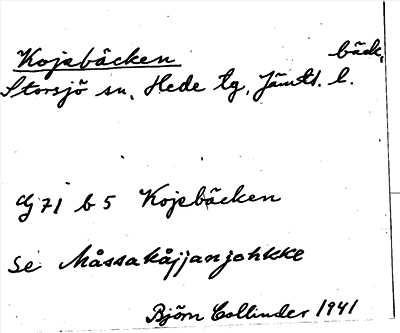 Kojebäcken bäck,
Storsjö sn, Hede tg, Jämtl. l.
Gj 71 b 5 Kojebäcken
Se Måssakåjjanjohkke
Björn Collinder 1941